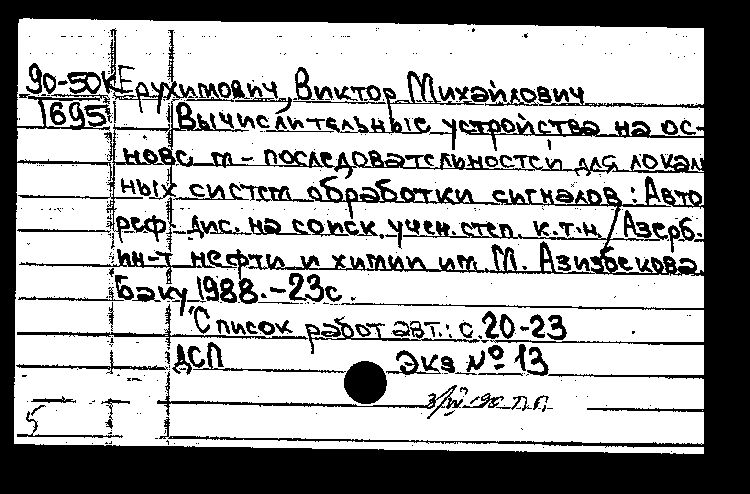 90-50К Ерухимович, Виктор Михайлович
1695 Вычислительные устройства на ос-
нове m-последовательностей для локаль
ных систем обработки сигналов: Авто
реф. дис. на соиск. учен. степ. к.т.н. / Азерб.
ин-т нефти и химии им. М. Азизбекова.
Баку, 1988. - 23с.
Список работ авт.: с. 20-23
ДСП Экз № 13
5